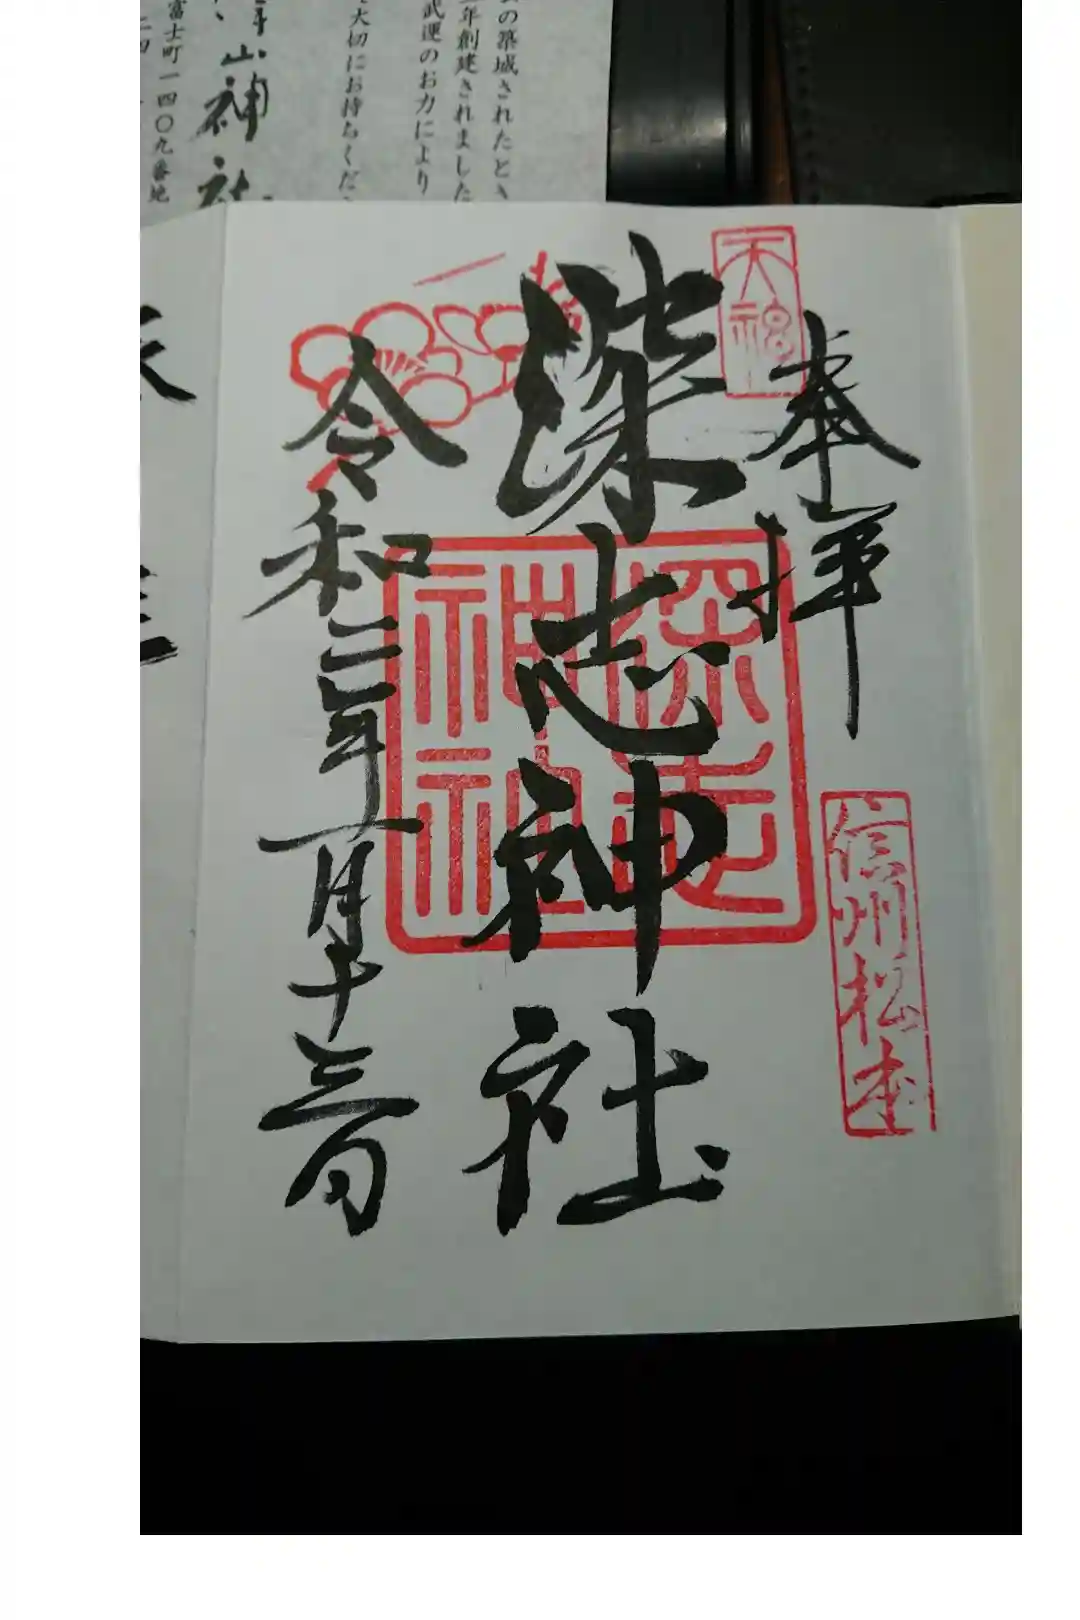 の築城されたとき
年創建されました
武運のお力により
大切にお持ちくだ
山神社
富士町一四〇九番地
奉拝
天神
信州松本
深志神社
深志神社
令和二年一月十三日